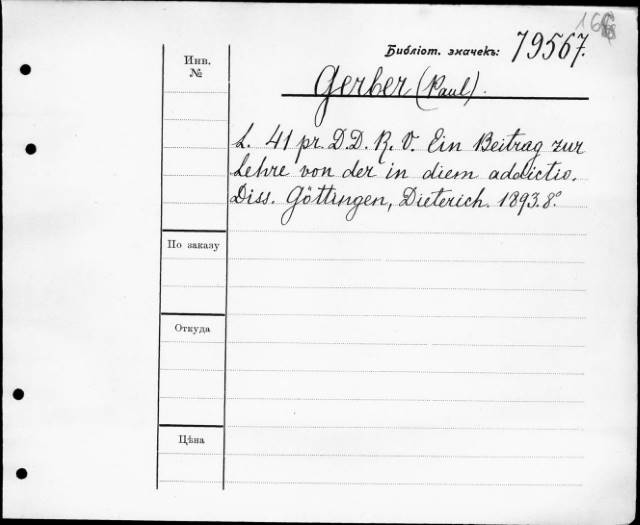 Библіот. значекъ: 79567.
Инв. №
Gerber (Paul).
L. 41 pr. D.D. R. V. Ein Beitrag zur
Lehre von der in diem addictio.
Diss. Göttingen, Dieterich. 1893. 8.°
По заказу
Откуда
Цѣна